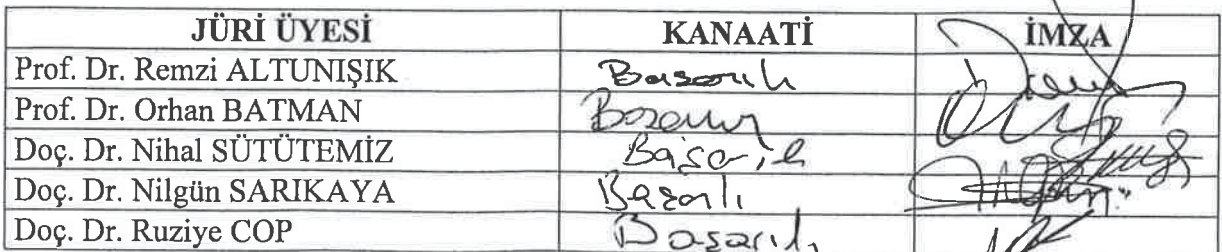 JÜRİ ÜYESİ KANAATİ İMZA
Prof. Dr. Remzi ALTUNIŞIK Başarılı
Prof. Dr. Orhan BATMAN Başarılı
Doç. Dr. Nihal SÜTÜTEMİZ Başarılı
Doç. Dr. Nilgün SARIKAYA Başarılı
Doç. Dr. Ruziye COP Başarılı